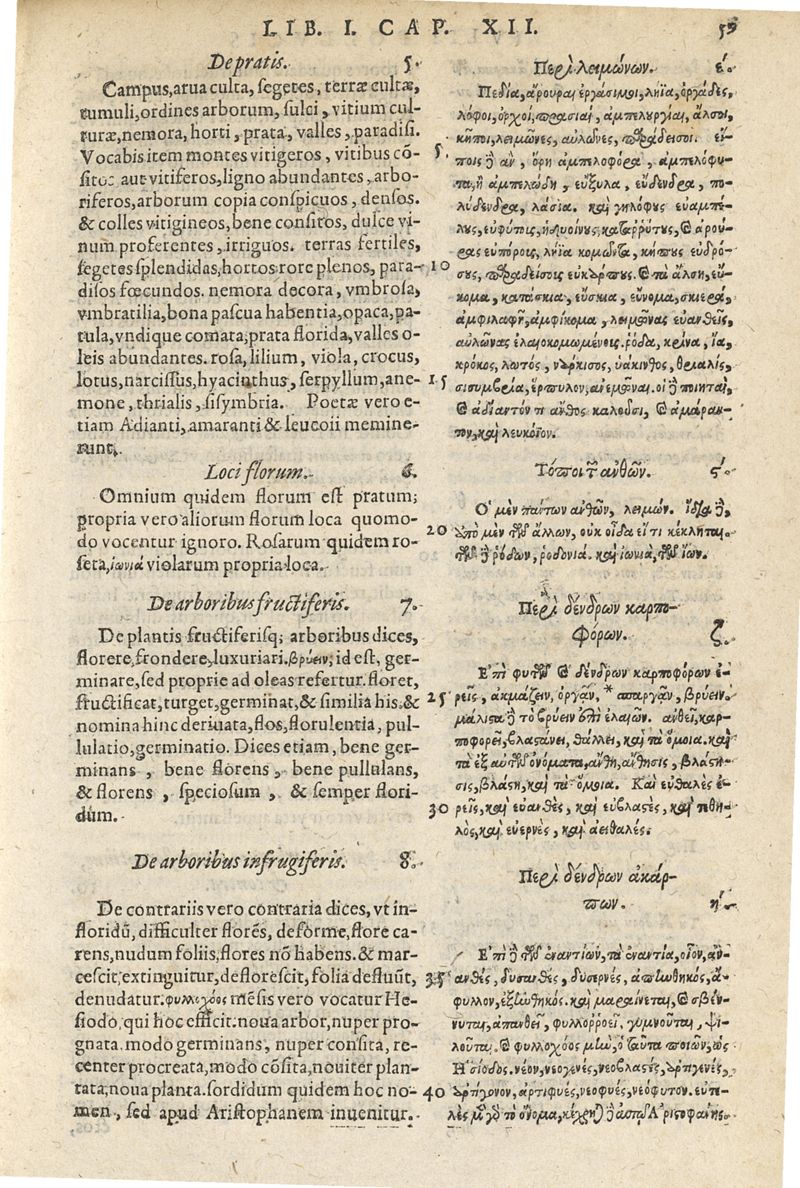 LIB. I. CAP. XII. 59
De pratis. 5.
Campus, arua culta, segetes, terræ cultæ,
tumuli, ordines arborum, sulci, vitium cul-
turæ, nemora, horti, prata, valles, paradisi.
Vocabis item montes vitigeros, vitibus cõ-
sitos aut vitiferos, ligno abundantes, arbo-
riferos, arborum copia conspicuos, densos.
& colles vitigineos, bene consitos, dulce vi-
num proferentes, irriguos. terras fertiles,
segetes splendidas, hortos rore plenos, para-
disos fœcundos. nemora decora, vmbrosa,
vmbratilia, bona pascua habentia, opaca, pa-
tula, vndique comata, prata florida, valles o-
leis abundantes. rosa, lilium, viola, crocus,
lotus, narcissus, hyacinthus, serpyllum, ane-
mone, thrialis, sisymbria. Poetæ vero e-
tiam Adianti, amaranti & leucoii memine-
runt.
Loci florum. 6.
Omnium quidem florum est pratum;
propria vero aliorum florum loca quomo-
do vocentur ignoro. Rosarum quidem ro-
seta, ἰωνιά violarum propria loca.
De arboribus fructiferis. 7.
De plantis fructiferisq; arboribus dices,
florere, frondere, luxuriari. βρύειν; id est, ger-
minare, sed proprie ad oleas refertur. floret,
fructificat, turget, germinat, & similia his. &
nomina hinc deriuata, flos, florulentia, pul-
lulatio, germinatio. Dices etiam, bene ger-
minans, bene florens, bene pullulans,
& florens, speciosum, & semper flori-
dum.
De arboribus infrugiferis. 8.
De contrariis vero contraria dices, vt in-
floridũ, difficulter florẽs, deforme, flore ca-
rens, nudum foliis, flores nõ habens. & mar-
cescit, extinguitur, deflorescit, folia defluũt,
denudatur. φυλλοχόος mẽsis vero vocatur He-
siodo, qui hoc efficit. noua arbor, nuper pro-
gnata. modo germinans, nuper consita, re-
center procreata, modo cõsita, nouiter plan-
tata, noua planta. sordidum quidem hoc no-
men, sed apud Aristophanem inuenitur.
Περὶ λειμώνων. έ.
Πεδία, ἄρουραι ἐργάσιμοι, λήϊα, ὀργάδες,
λόφοι, ὄρχοι, πρασιαὶ, ἀμπελουργίαι, ἄλση,
κῆποι, λειμῶνες, αὐλῶνες, παράδεισοι. εἴ-
5 ποις δ᾽ ἂν, ὄρη ἀμπελοφόρα, ἀμπελόφυ-
τα, ἢ ἀμπελώδη, εὔξυλα, εὔδενδρα, πο-
λύδενδρα, λάσια. καὶ γηλόφους εὐαμπέ-
λους, εὐφύτους, ἡδυοίνους, καταρρύτους, καὶ ἀρού-
ρας εὐπόρους, λήϊα κομῶντα, κήπους εὐδρό-
10 σους, παραδείσους εὐκάρπους. καὶ τὰ ἄλση, εὔ-
κομα, κατάσκια, εὔσκια, εὔνομα, σκιερὰ,
ἀμφιλαφῆ, ἀμφίκομα, λειμῶνας εὐανθεῖς,
αὐλῶνας ἐλαιοκομωμένους. ῥόδα, κρίνα, ἴα,
κρόκος, λωτός, νάρκισσος, ὑάκινθος, θρυαλίς,
15 σισυμβρία, ἕρπυλον, ἀνεμῶναι. οἱ δὲ ποιηταὶ,
καὶ ἀδίαντόν τι ἄνθος καλοῦσι, καὶ ἀμάραν-
τον, καὶ λευκόϊον.
Τόποι τῶν ἀνθῶν. ϛ.
Ὁ μὲν πάντων ἀνθῶν, λειμών. ἴδια δὲ,
20 ἀπὸ μὲν τῶν ἄλλων, οὐκ οἶδα εἴ τι κέκληται.
τῶν δὲ ῥόδων, ῥοδωνιά. καὶ ἰωνιὰ, τῶν ἴων.
Περὶ δένδρων καρπο-
φόρων. ζ.
Ἐπὶ φυτῶν καὶ δένδρων καρποφόρων ἐ-
25 ρεῖς, ἀκμάζειν, ὀργᾶν, * σπαργᾶν, βρύειν.
μάλιστα δὲ τὸ βρύειν ἐπὶ ἐλαιῶν. ἀνθεῖ, καρ-
ποφορεῖ, βλαστάνει, θάλλει, καὶ τὰ ὅμοια. καὶ
τὰ ἐξ αὐτῶν ὀνόματα, ἄνθη, ἄνθησις, βλάστη-
σις, βλάστη, καὶ τὰ ὅμοια. Καὶ εὐθαλὲς ἐ-
30 ρεῖς, καὶ εὐανθὲς, καὶ εὐβλαστὲς, καὶ τεθη-
λὸς, καὶ εὐερνὲς, καὶ ἀειθαλές.
Περὶ δένδρων ἀκάρ-
πων. ή.
Ἐπὶ δὲ τῶν ἐναντίων, τὰ ἐναντία, οἷον, ἀν-
35 ανθές, δυσανθές, δυσερνές, ἀπηνθηκός, ἄ-
φυλλον, ἐξηνθηκός. καὶ μαραίνεται, καὶ σβέν-
νυται, ἀπανθεῖ, φυλλορροεῖ, γυμνοῦται, ψι-
λοῦται. καὶ φυλλοχόος μὴν, ὁ ταῦτα ποιῶν, ὡς
Ἡσίοδος. νέον, νεογενές, νεοβλαστές, ἀρτιγενές,
40 ἀρτίγονον, ἀρτιφυές, νεοφυές, νεόφυτον. εὐτε-
λὲς μὲν γὰρ τὸ ὄνομα, κέχρηται δὲ αὐτῷ Ἀριστοφάνης.